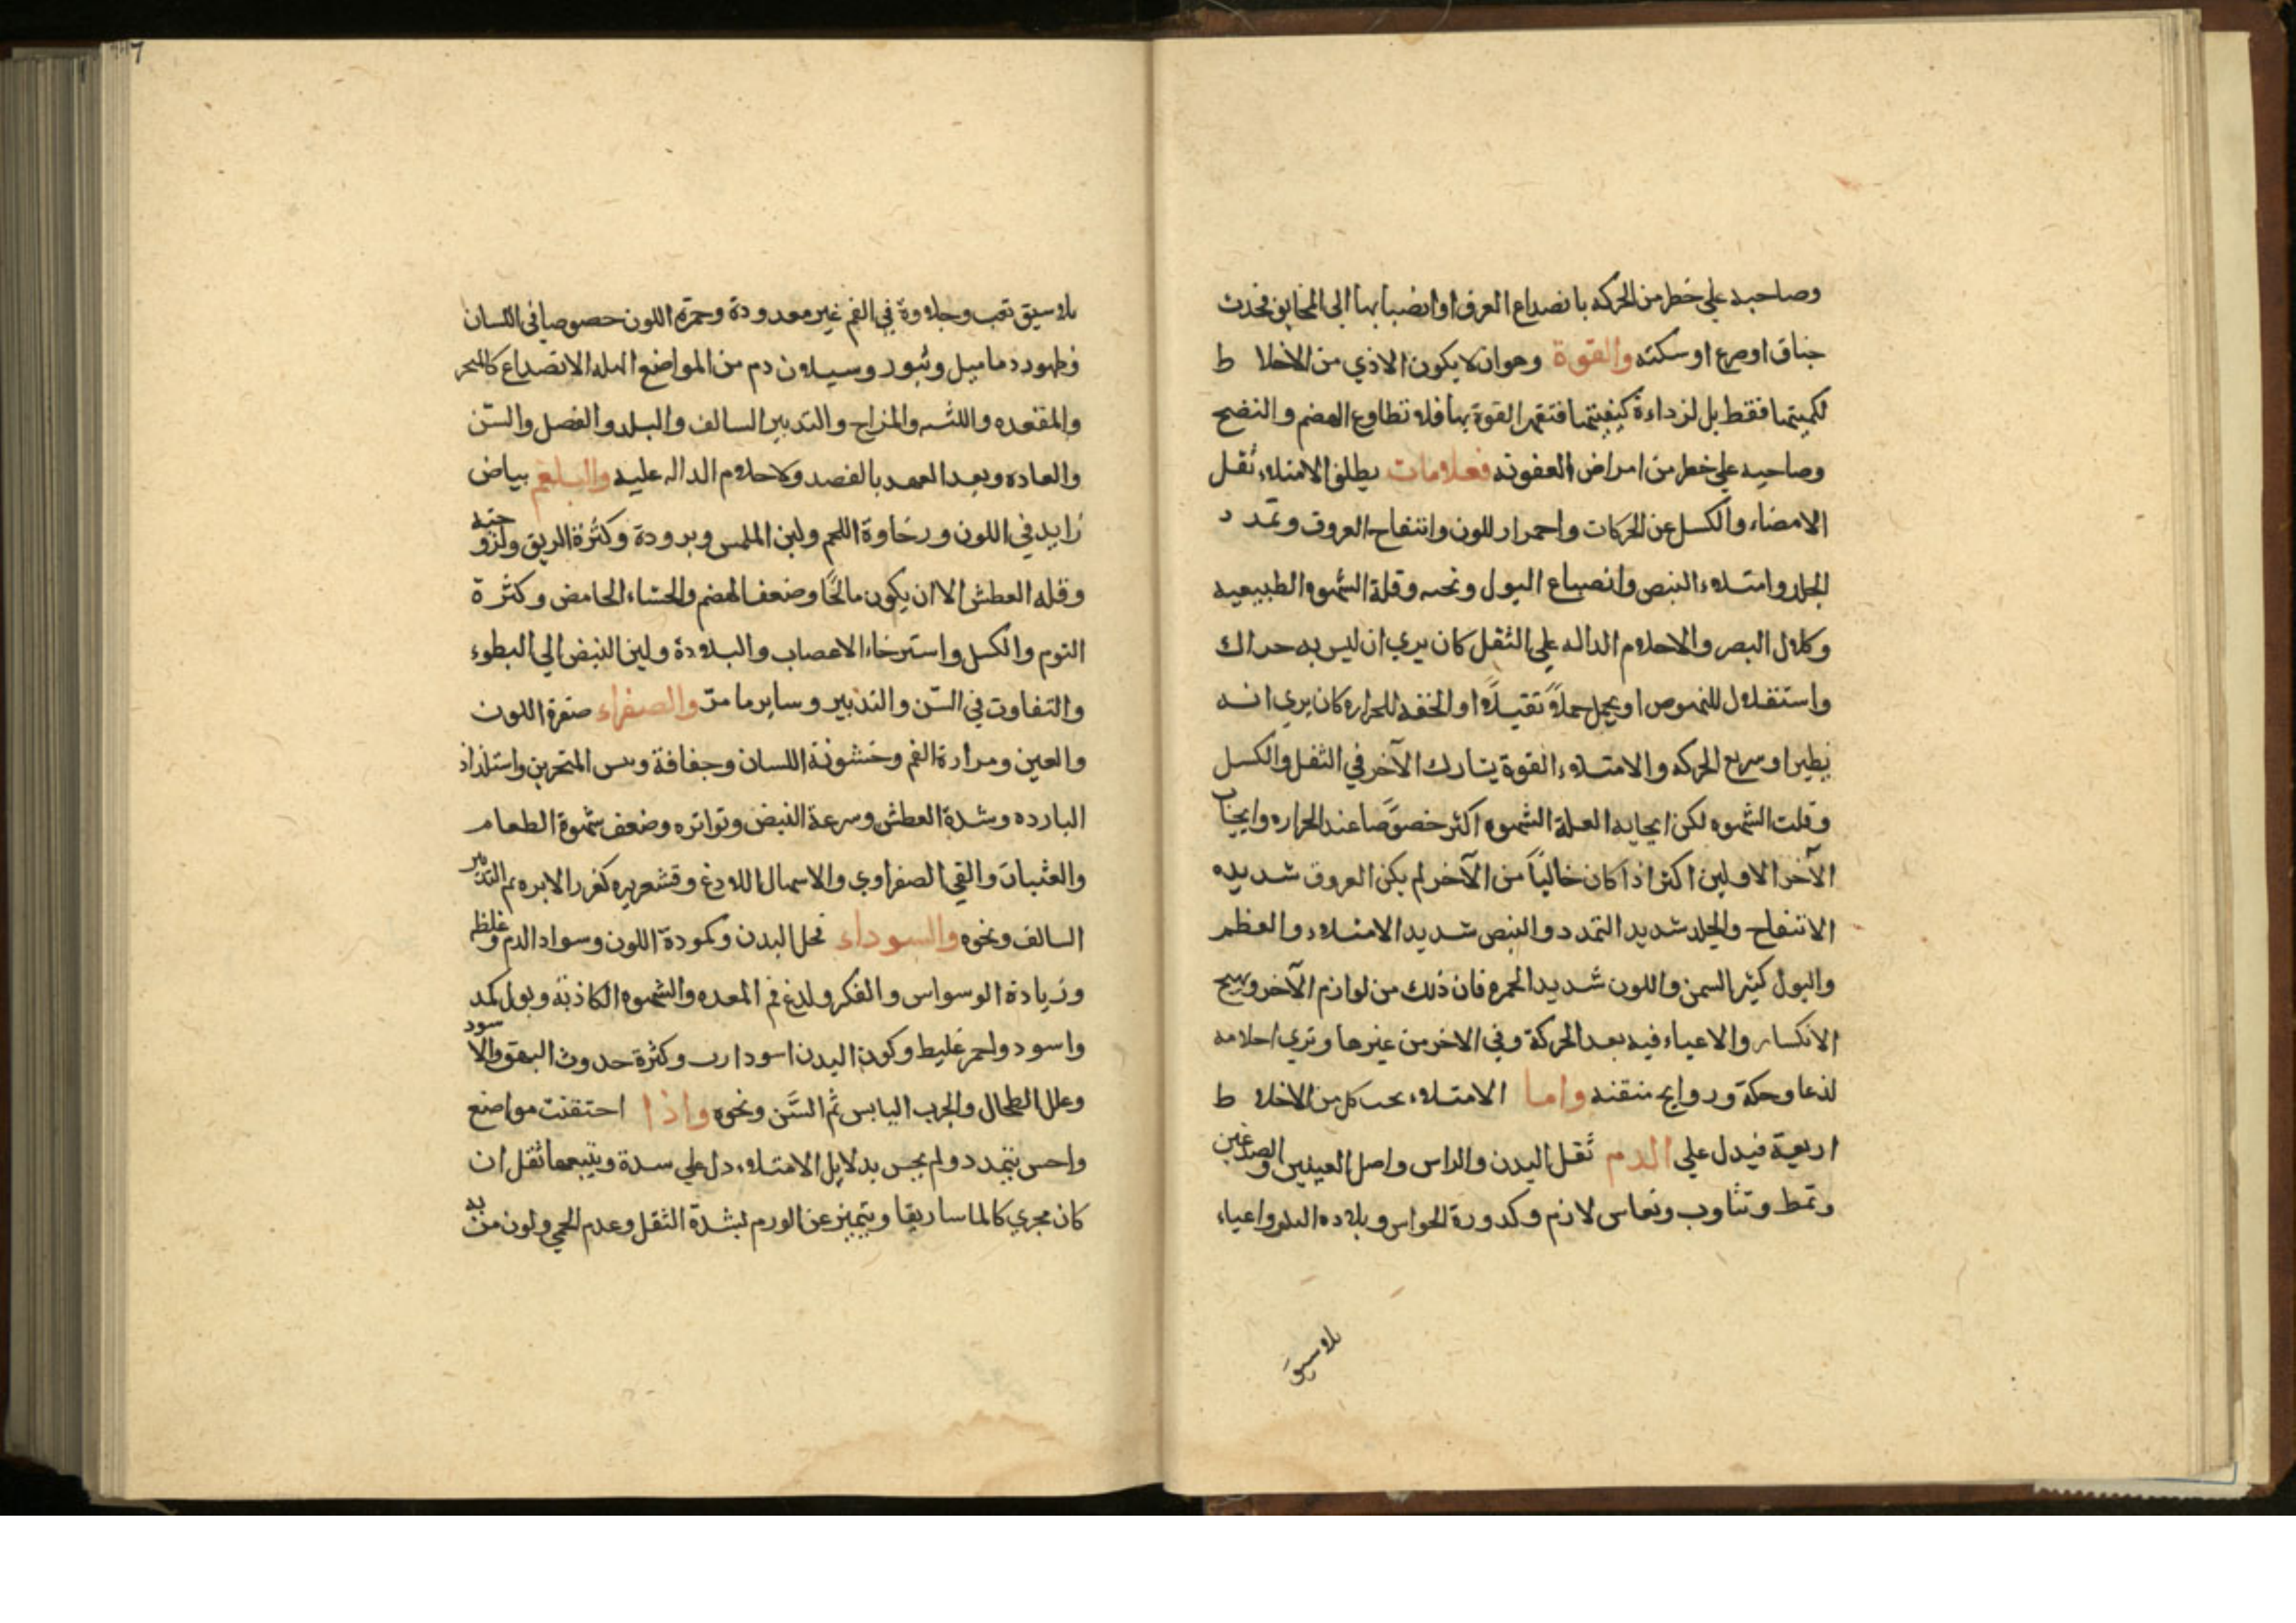 وصاحبه علي خطر من الحركه بانصداع العرق او انضبابها الي المخانق فيحدث
خناق او صرع او سكته والقوة وهو ان لا يكون الاذي من الاخلا ط
لكميتها فقط بل لرداءة كيفيتها فتقهر القوة بها فلا تطاوع الهضم والنضج
وصاحبه علي خطر من امراض العفونه فعلامات يطلق الامتلاء ثقل
الاعضاء والكسل عن الحركات واحمرار اللون وانتفاخ العروق وتمدد
الجلد وامتلاء النبض وانصباغ البول وثخنه وقلة الشهوه الطبيعيه
وكلال البصر والاحلام الداله علي الثقل كان يري ان ليس به حراك
واستقلال للنهوض او يحمل حملاً ثقيلاً او الخفه للحراره كان يري انه
يطير او سريع الحركه والامتلاء القوة يشارك الآخر في الثقل والكسل
وقلت الشهوه لكن ايجابه العلة الشهوه اكثر خصوصا عند الحراره وايجاب
الآخر الاولين اكثر اذا كان خالياً من الآخر لم يكن العروق شديده
الانتفاخ والجلد شديد التمدد والنبض شديد الامتلاء والعظم
والبول كثير السمن واللون شديد الحمره فان ذلك من لوازم الآخر ويهيج
الانكسار والاعياء فيه بعد الحركة وفي الاخر من غيرها وتري احلامه
لذعا وحكة وروايح منتنه واما الامتلاء بحسب كل من الاخلا ط
اربعة فيدل علي الدم ثقل البدن والراس واصل العينين والصدغين
وتمط وتثاوب ونعاس لازم وكدورة الحواس وبلاده واعياء
بلا سبق
بلا سبق تعب وحلاوة في الفم غير معدودة وحمرة اللون خصوصا في اللسان
وظهور دماميل وثبور وسيلان دم من المواضع السهله الانصداع كالمنخر
والمقعده واللثه والمزاج والتدبير السالف والبلد والفصل والسّن
والعاده وبعد العهد بالفصد ولاحلام الداله عليه والبلغم بياض
زايد في اللون ورخاوة اللحم ولين الملمس وبرودة وكثرة الريق ولزوجته
وقله العطش الا ان يكون مالحًا وضعف الهضم والجشاء الحامض وكثرة
النوم والكسل واسترخاء الاعصاب والبلادة ولين النبض الي البطوء
والتفاوت في السّن والتدبير وساير ما مرّ والصفراء صفرة اللون
والعين ومرارة الفم وخشونة اللسان وجفافة ويبس المنخرين واستلذاذ
البارده وشدة العطش وسرعة النبض وتواتره وضعف شهوة الطعام
والغثيان والقي الصفراوي والاسهال اللادغ وقشعريره كغرز الابره ثم التدبير
السالف ونحوه والسوداء نحل البدن وكمودة اللون وسواد الدم وغلظه
وزيادة الوسواس والفكر ولدغ فم المعده والشهوه الكاذبة وبول كمد
واسود واحمر غليظ وكون البدن اسود ارب وكثرة حدوث البهق والاسود
وعلل الطحال والجرب اليابس ثم السَّن ونحوه واذا احتقنت مواضع
واحس بتمدد ولم يحس بدلايل الامتلاء دل علي سدة ويتبعها ثقل ان
كان مجري كالماساريقا ويتميز عن الورم بشدة الثقل وعدم الحمي ولون من به